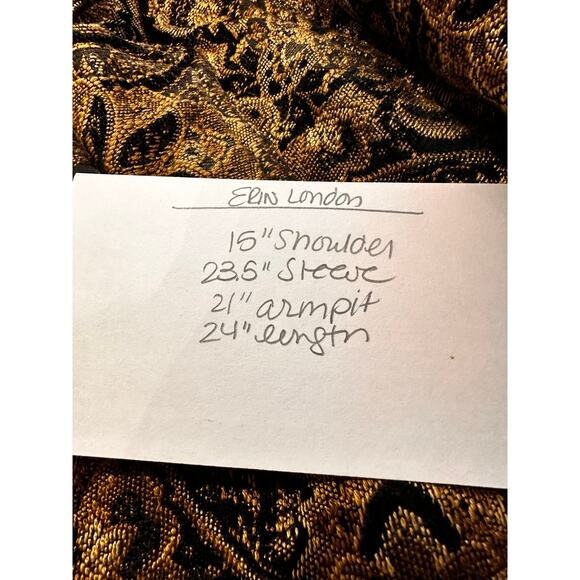 ERIN London
15" Shoulder
23.5" Sleeve
21" armpit
24" length